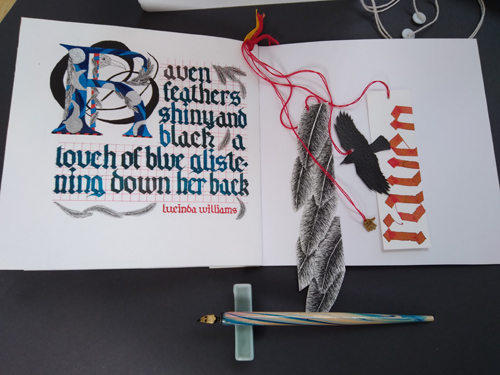 Raven
feathers
shiny and
black a
touch of blue gliste-
ning down her back
lucinda williams
raven